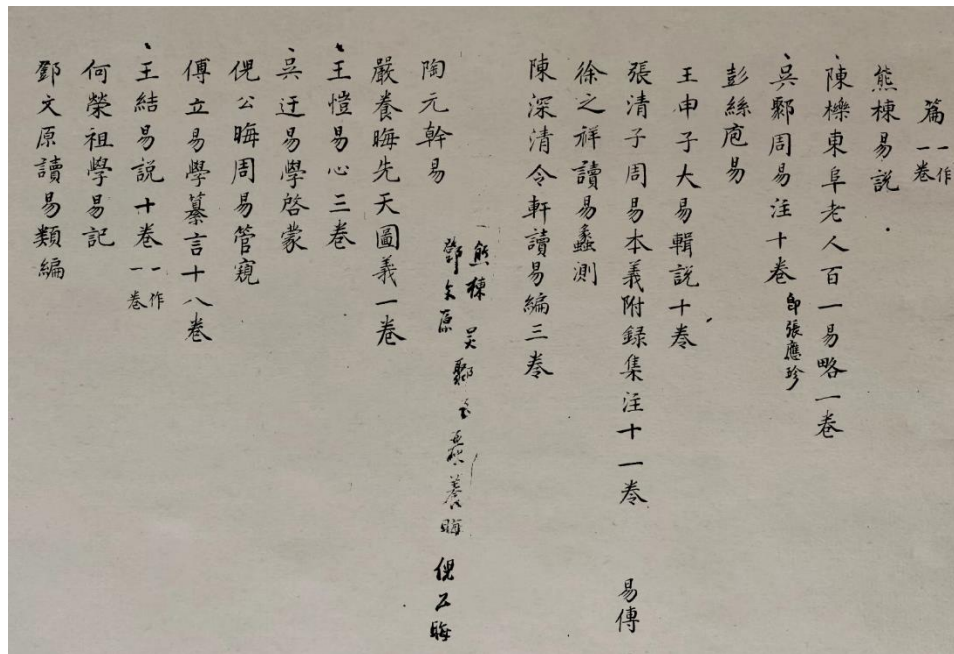 篇一作一卷
熊棟易説
陳櫟東阜老人百一易略一卷
吳鄹周易注十卷即張應珍
彭絲庖易
王申子大易輯説十卷
張清子周易本義附録集注十一卷 易傳
徐之祥讀易蠡測
陳深清令軒讀易編三卷
熊棟 吳鄹
鄧文原 嚴養晦 倪公晦
陶元幹易
嚴養晦先天圖義一卷
王愷易心三卷
吳迂易學啓蒙
倪公晦周易管窺
傅立易學纂言十八卷
王結易説十卷一作一卷
何榮祖學易記
鄧文原讀易類編